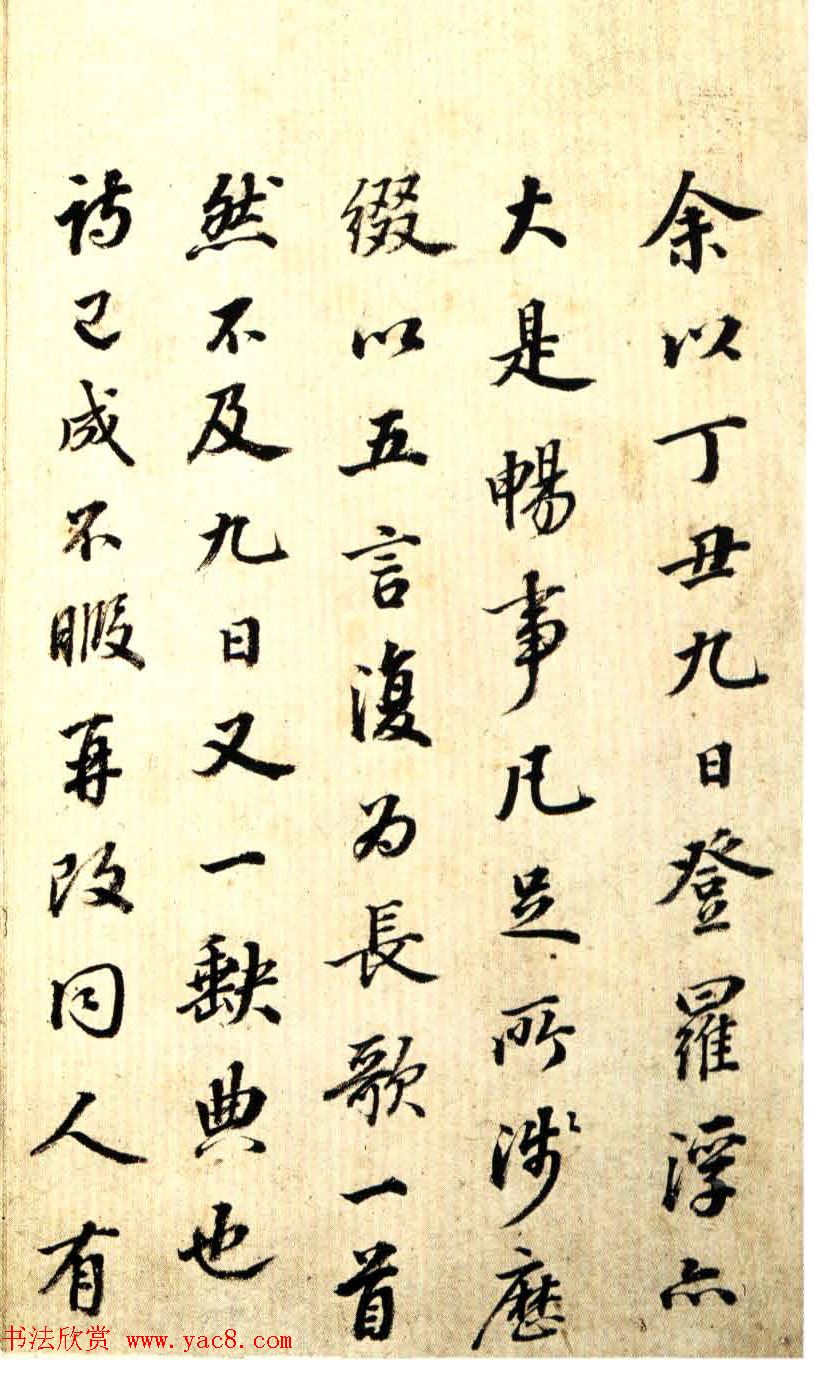 余以丁丑九日登羅浮亦
大是暢事凡足所涉歷
綴以五言復為長歌一首
然不及九日又一缺典也
詩已成不暇再改同人有
书法欣赏 www.yac8.com